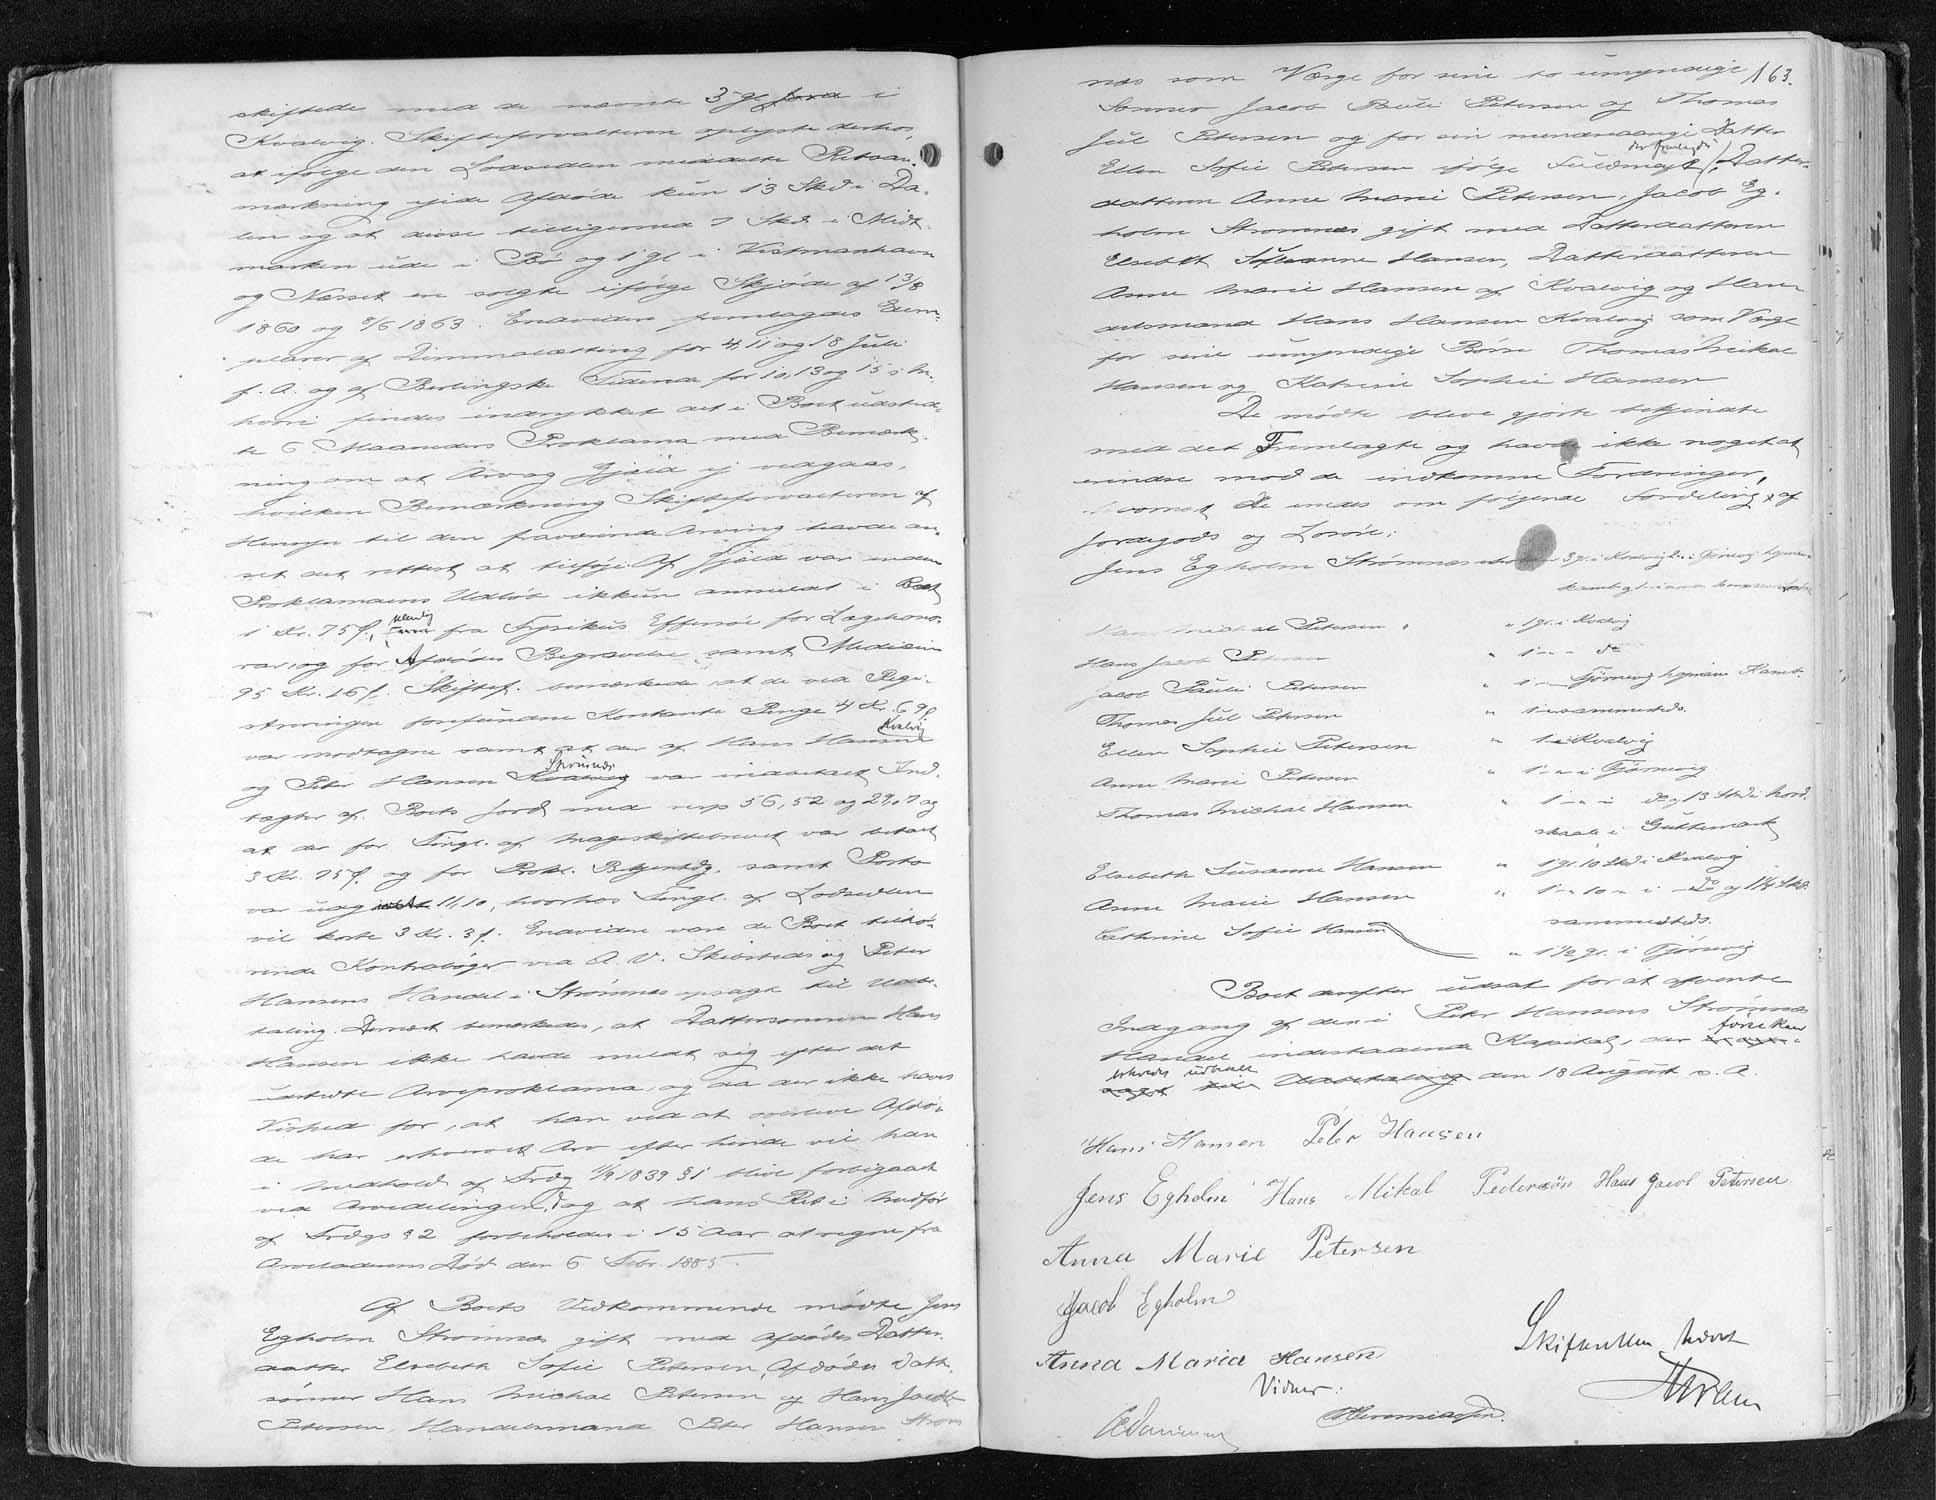 skiftede med de nævnte 3 gl. i
Kvalvig. Skifteforvalteren oplyste derhos,
at ifølge den Lodseddelen meddelte Retsan-
mærkning ejede Afdøde kun 13 Skd i Da-
len og at disse tilligemed 7 Skd. i Midt-
marken ude i Bø og 1 gl. i Vestmanhavn
og Næsset ere solgte ifølge Skjøde af 13/8
1860 og 8/6 1863. Endvidere fremlagdes Exem-
plarer af Dimmalætting for 4, 11 og 18 Juli
f. A. og af Berlingske Tidende for 10, 13 og 15 s. M.
hvori findes indrykket det i Boet udsted-
te 6 Maaneders Proklama med Bemærk-
ning om at Arv og Gjæld ej vedgaas,
hvilken Bemærkning Skifteforvalteren af
Hensyn til den fraværende Arving havde an-
set det rettest at tilføje. Af Gjæld var inden
Proklamaens Udløb ikkun anmeldt i Boet
1 Kr. 75 f. fra Fysikus Effersøe for Lægehono-
rar, og for Afdødes Begravelse samt Medicin
95 Kr. 16 f. Skiftef. bemærkede, at de ved Regi-
streringen forefundne Kontante Penge 4 Kr. 69 f
var modtagne samt at der af Hans Hansen Kvalvig
og Peter Hansen Strømnæs var indbetalt Ind-
tægter af Boets Jord med resp 56,52 og 29,07 og
at der for Tingl. af Mageskiftebrevet var betalt
3 Kr. 75 f. og for Prokl. Bekjendtg. samt Porto
var udg 11,10, hvorhos Tingl. af Lodsedlen
vil koste 3 Kr. 3 f. Endvidere vare de Boet tilhø-
rende Kontrabøger ved A. V. Skibsteds og Peter
Hansens Handel i Strømnæs opsagt til Udbe-
taling. Dernæst bemærkedes, at Dattersønnen Hans
Hansen ikke havde meldt sig efter det
udstedte Arveproklama, og da der ikke haves
Vished for, at han ved at overleve Afdø-
de har erhvervet Arv efter hende vil han
i Medhold af Frdg 11/9 1839 § 1 blive forbigaaet
ved Arvedelingen, og at hans Ret i Medfør
af Frdgs § 2 forbeholdes i 15 Aar at regne fra
Arveladerens Død den 6 Febr. 1885.
Af Boets Vedkommende mødte Jens
Egholm Strømnæs gift med Afdødes Datter-
datter Elsebeth Sofie Petersen, Afdødes Datt.
sønner Hans Michal Petersen og Hans Jacob
Petersen, Handelsmand Peter Hansen Strøm
163.
næs som Værge for sine to umyndige
Sønner Jacob Pauli Petersen og Thomas
Jul Petersen og for sin mindreaarige Datter
Ellen Sofie Petersen ifølge Fuldmagt, Datter-
datteren Anne Marie Petersen, Jacob Eg-
holm Strømnæs gift med Datterdatteren
Elsebeth Susanne Hansen, Datterdatteren
Anne Marie Hansen af Kvalvig og Han-
delsmand Hans Hansen Kvalvig som Værge
for sine umyndige Børn Thomas Meikal
Hansen og Katrine Sophie Hansen
De mødte bleve gjorte bekjendte
med det Fremlagte og havde ikke noget at
erindre mod de indkomne Fordringer,
hvornæst de enedes om følgende Fordeling af
Jordegods og Losøre:
Jens Egholm Strømnæs 3 gl. i Kvalvig
Hans Michal Petersen " 1 gl. i Kvalvig
Hans Jacob Petersen " 1 - - do
Jacob Pauli Petersen " 1 - Tjørnevig
Thomas Jul Petersen " 1 - sammesteds.
Ellen Sophie Petersen " 1 - Kvalvig
Anne Marie Petersen " 1 - - i Tjørnevig
Thomas Michal Hansen " 1 - - i do og 13 Skd i Nord-
skaale i Guttemark
Elsebeth Susanne Hansen " 1 gl. 10 Skd i Kvalvig
Anne Marie Hansen " 1 - 10 - i - do og 1 1/4 Skd.
sammesteds.
Cathrine Sofie Hansen " 1 1/2 gl. i Tjørnevig
Boet derefter udsat for at afvente
Indgang af den i Peter Hansens Strømnæs
Handel indestaaende Kapital, der først kan
erholdes udbetalt den 18 August d. A.
Hans Hansen Peter Hansen
Jens Egholm Hans Mikal Pedersen Hans Jacob Petersen
Anna Marie Petersen
Jacob Egholm
Anna Maria Hansen
Skifteretten hævet
Vidner: